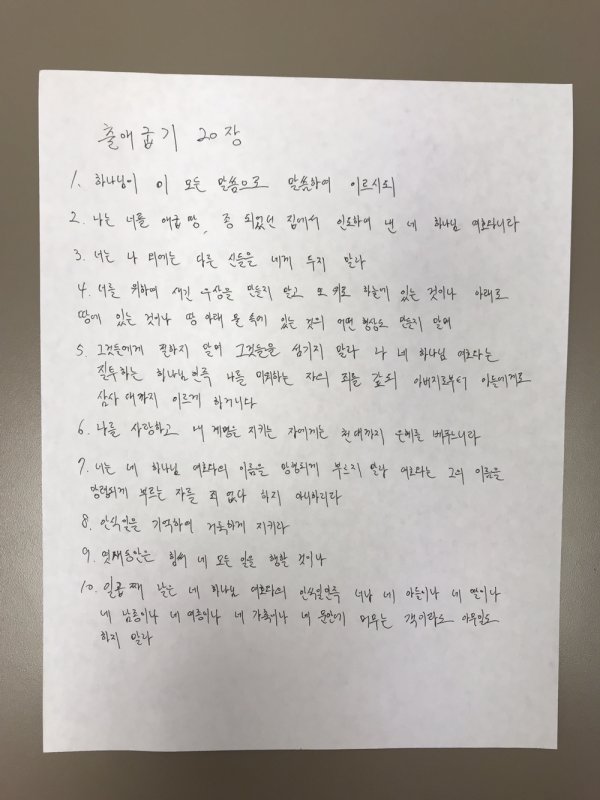 출애굽기 20장
1. 하나님이 이 모든 말씀으로 말씀하여 이르시되
2. 나는 너를 애굽 땅, 종 되었던 집에서 인도하여 낸 네 하나님 여호와니라
3. 너는 나 외에는 다른 신들을 네게 두지 말라
4. 너를 위하여 새긴 우상을 만들지 말고 또 위로 하늘에 있는 것이나 아래로
땅에 있는 것이나 땅 아래 물 속에 있는 것의 어떤 형상도 만들지 말며
5. 그것들에게 절하지 말며 그것들을 섬기지 말라 나 네 하나님 여호와는
질투하는 하나님인즉 나를 미워하는 자의 죄를 갚되 아버지로부터 아들에게로
삼사 대까지 이르게 하거니와
6. 나를 사랑하고 내 계명을 지키는 자에게는 천 대까지 은혜를 베푸느니라
7. 너는 네 하나님 여호와의 이름을 망령되게 부르지 말라 여호와는 그의 이름을
망령되게 부르는 자를 죄 없다 하지 아니하리라
8. 안식일을 기억하여 거룩하게 지키라
9. 엿새동안은 힘써 네 모든 일을 행할 것이나
10. 일곱 째 날은 네 하나님 여호와의 안식일인즉 너나 네 아들이나 네 딸이나
네 남종이나 네 여종이나 네 가축이나 네 문안에 머무는 객이라도 아무일도
하지 말라